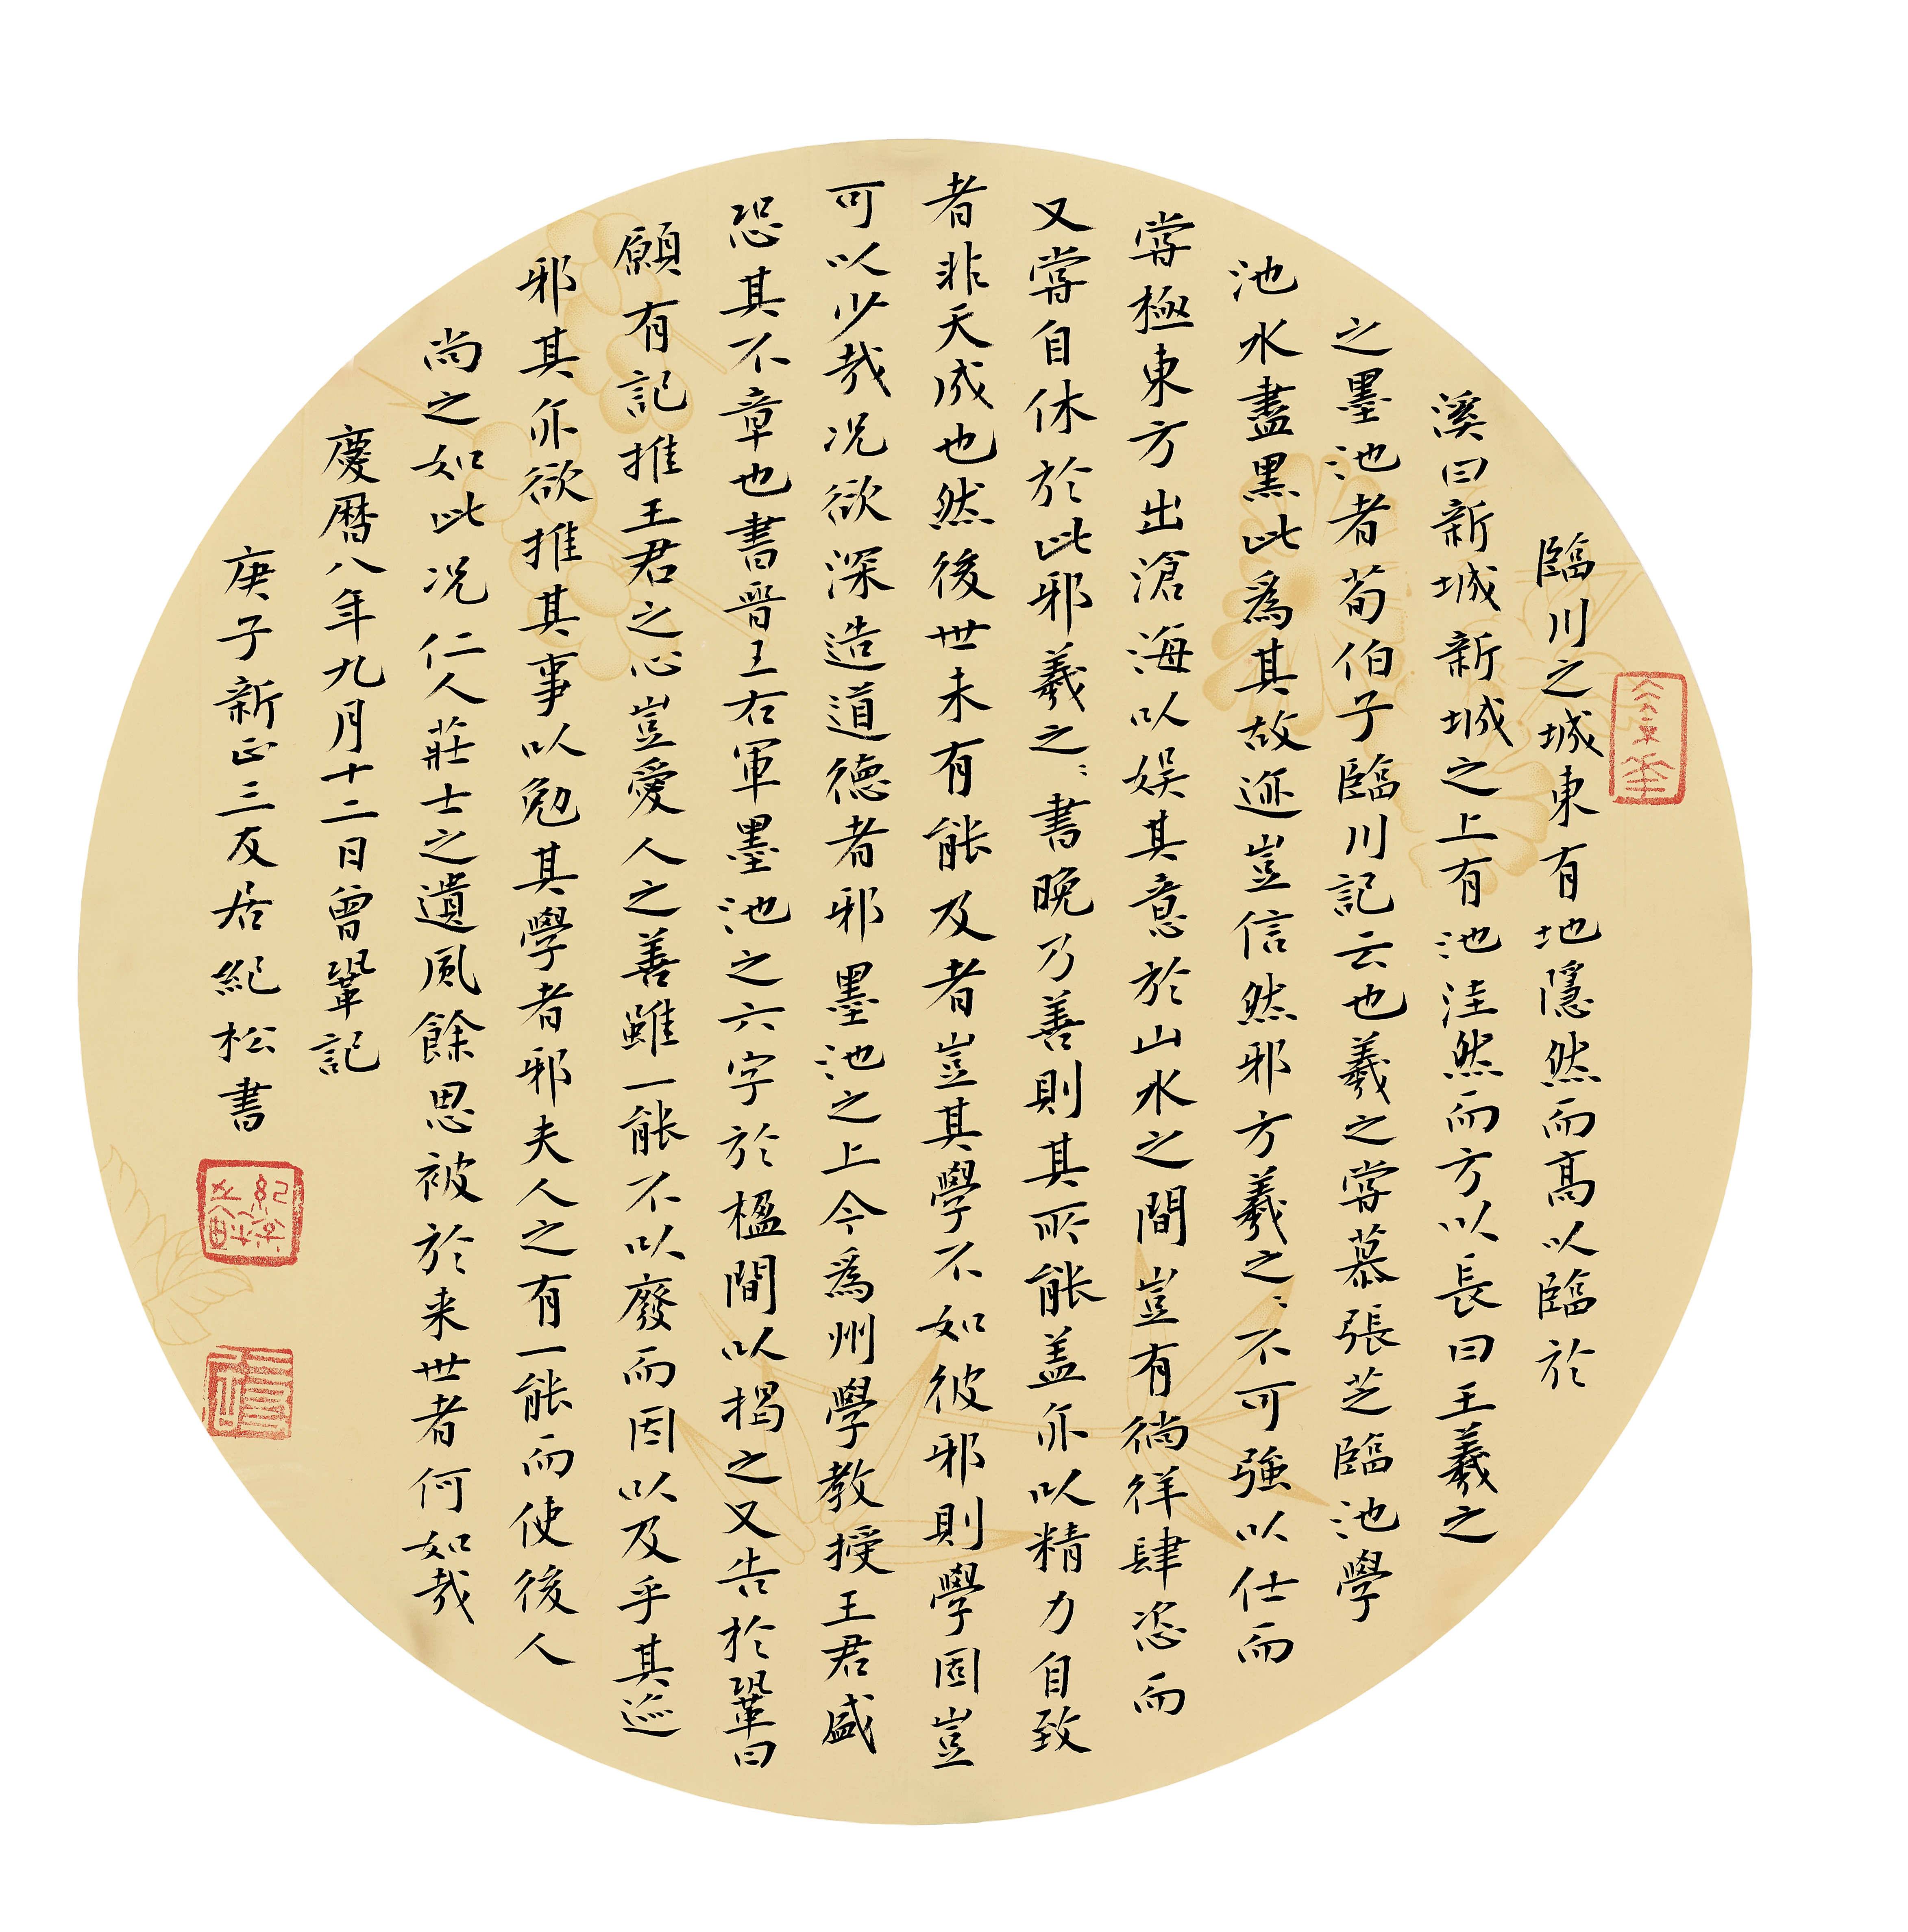 臨川之城東有地隱然而高以臨於
溪曰新城新城之上有池洼然而方以長曰王羲之
之墨池者荀伯子臨川記云也羲之嘗慕張芝臨池學
池水盡黑此為其故迹豈信然邪方羲之〻不可強以仕而
嘗極東方出滄海以娛其意於山水之間豈有徜徉肆恣而
又嘗自休於此邪羲之〻書晚乃善則其所能盖亦以精力自致
者非天成也然後世未有能及者豈其學不如彼邪則學固豈
可以少哉况欲深造道德者邪墨池之上今為州學教授王君盛
恐其不章也書晉王右軍墨池之六字於楹間以揭之又告於鞏曰
願有記推王君之心豈愛人之善雖一能不以廢而因以及乎其迹
邪其亦欲推其事以勉其學者邪夫人之有一能而使後人
尚之如此况仁人莊士之遺風餘思被於来世者何如哉
慶曆八年九月十二日曾鞏記
庚子新正三友居紀松書